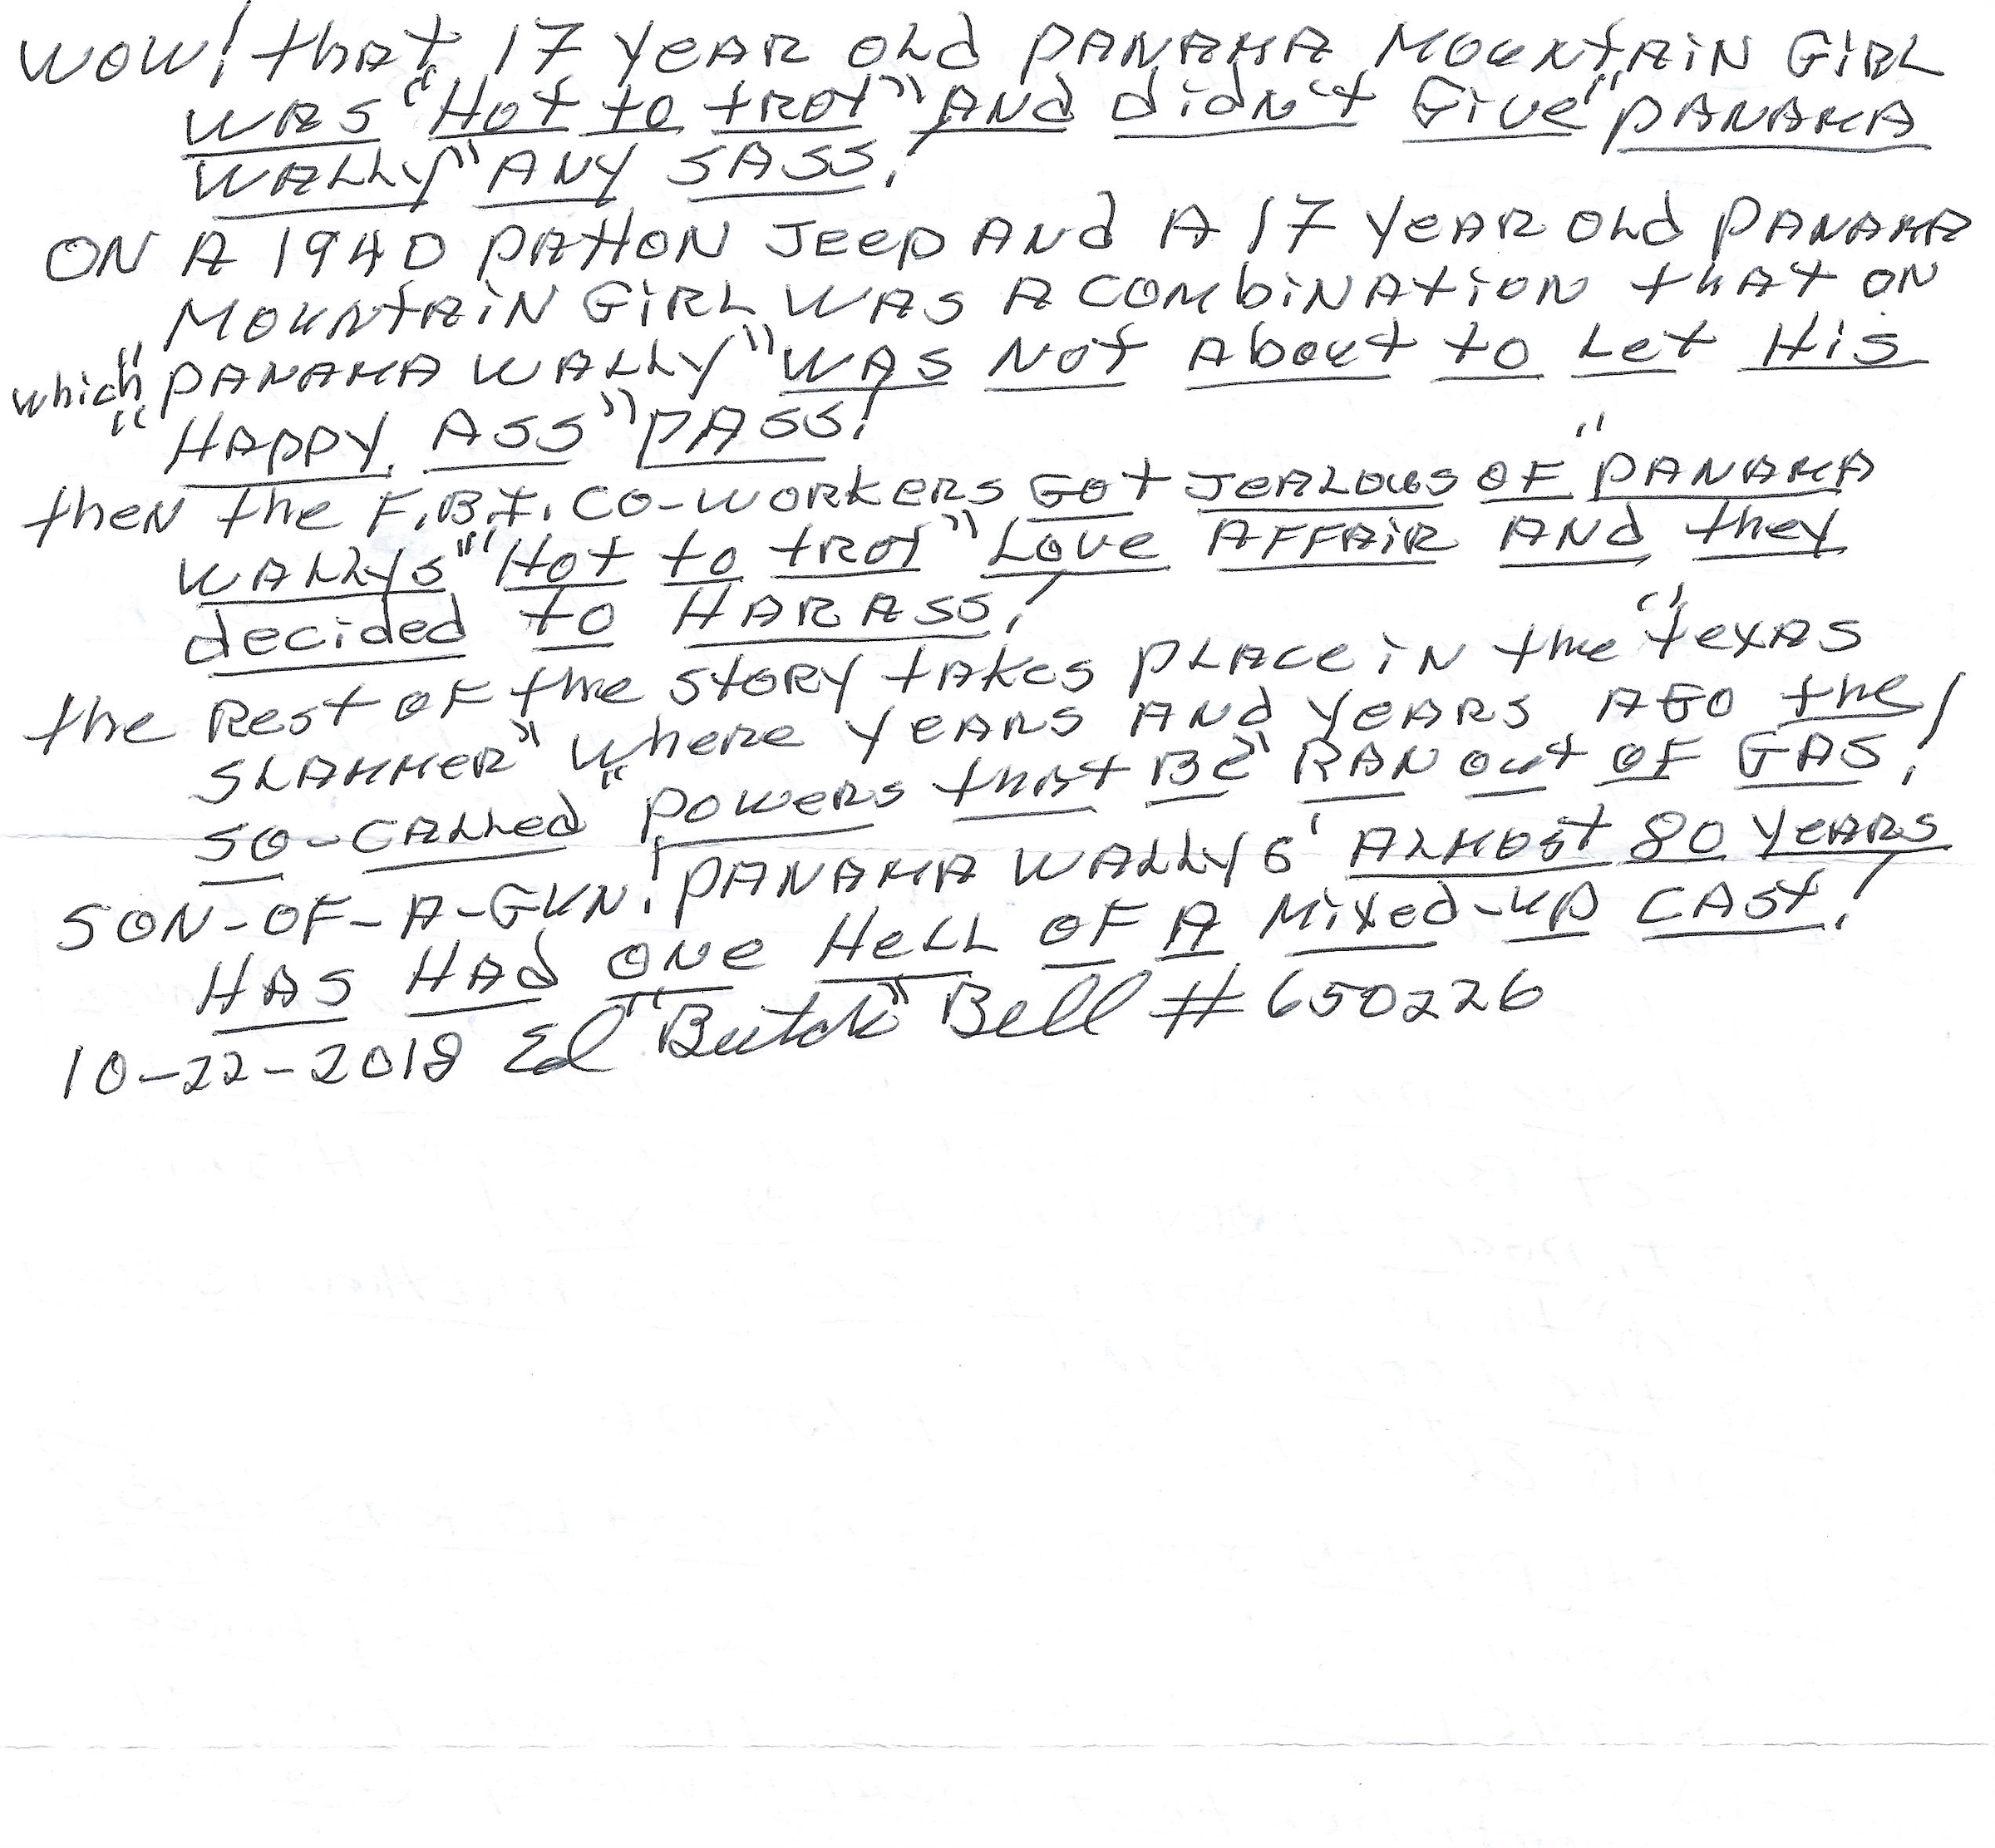 WOW! that 17 YEAR OLd PANAMA MOUNtAiN GiRL
WAS "Hot to tRot" ANd didN't GiVe "PANAMA
WALLY" ANY SASS!
ON A 1940 PAttON JEEP ANd A 17 YEAR OLd PANAMA
MOUNtAiN GiRL WAS A COMbiNAtiON tHAT ON
which "PANAMA WALLY" WAS NOt AbOUt tO Let HiS
"HAPPY ASS" PASS!
theN the F.B.I. CO-WORKERS GOt JeALOUS OF "PANAMA
WALLYS" "Hot to tRot" LOVe AFFAiR ANd they
decided tO HARASS!
the ReSt OF the StORY tAKeS PLACe iN the "teXAS
SLAMMER" wheRe YEARS ANd YEARS AGO the
SO-CALLed "POWERS thAt BE" RAN OUt OF GAS!
SON-OF-A-GUN! PANAMA WALLYS' ALMOSt 80 YeARS
HAS HAd ONe HeLL OF A MiXed-UP CASt!
10-22-2018 Ed "Butch" Bell # 650226